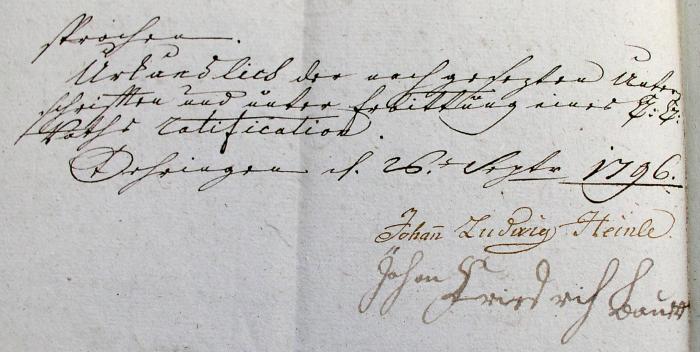 sprochen.
Urkundlich der nachgesezten Unter
schrifften und unter Erbittung eines
Raths ratification.
Oehringen d. 26. Septr. 1796.
Johan̄ Ludwig Heinle.
Johan Friedrich Bauer